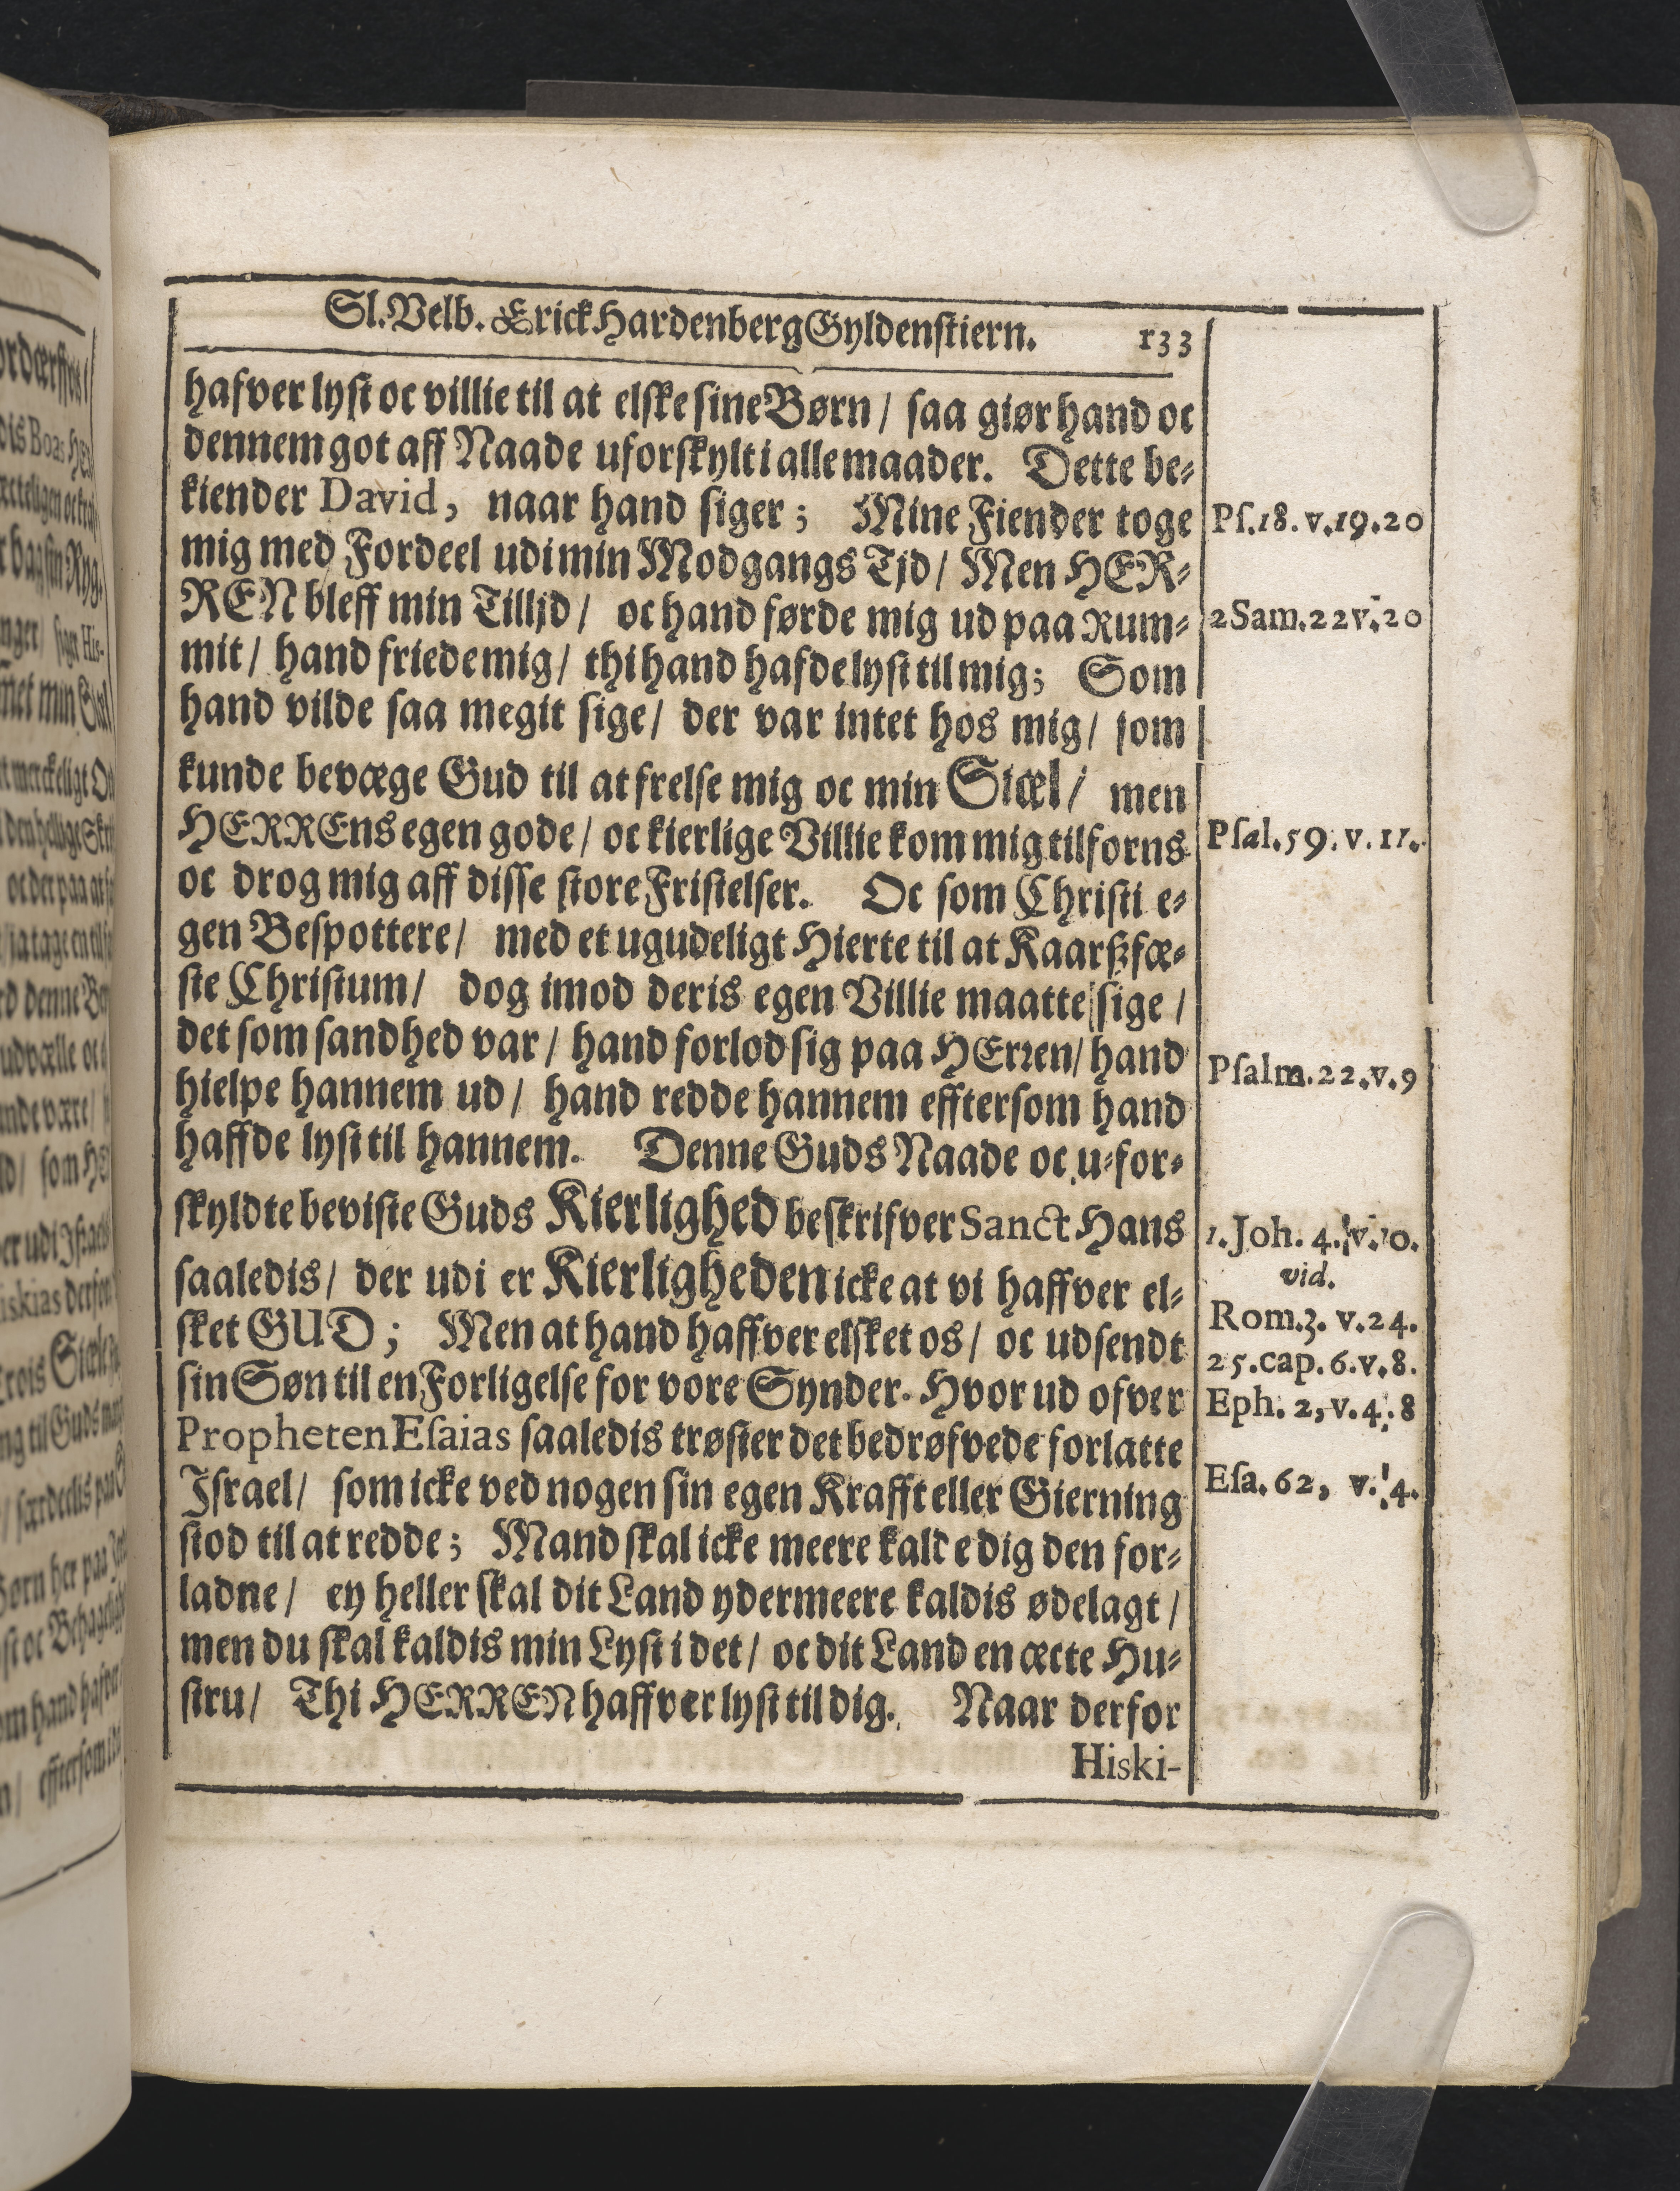 Sl. Velb. Erick Hardenberg Gyldenstiern. 133
hafver lyst oc villie til at elske sine Børn / saa giør hand oc
dennem got aff Naade uforskylt i alle maader. Dette be-
kiender David, naar hand siger; Mine Fiender toge
Pſ. 18. v. 19. 20
mig med Fordeel udi min Modgangs Tjd / Men HER-
REN bleff min Tilljd / oc hand førde mig ud paa Rum-
2 Sam. 22 v. 20
mit / hand friede mig / thi hand hafde lyst til mig; Som
hand vilde saa megit sige / der var intet hos mig / som
kunde bevæge Gud til at frelse mig oc min Siæl / men
HERRENs egen gode / oc kierlige Villie kom mig tilforns
Pſal. 59. v. 11.
oc drog mig aff disse store Fristelser. Oc som Christi e-
gen Bespottere / med et ugudeligt Hierte til at Kaarßfæ-
ste Christum / dog imod deris egen Villie maatte sige /
det som sandhed var / hand forlod sig paa HErren / hand
Pſalm. 22. v. 9
hielpe hannem ud / hand redde hannem efftersom hand
haffde lyst til hannem. Denne Guds Naade oc u-for-
skyldte beviste Guds Kierlighed beskrifver Sanct Hans
1. Joh. 4. v. 10.
vid.
saaledis / der udi er Kierligheden icke at vi haffver el-
Rom. 3. v. 24.
sket GUD; Men at hand haffver elsket os / oc udsendt
25. cap. 6. v. 8.
sin Søn til en Forligelse for vore Synder. Hvor ud ofver
Eph. 2, v. 4. 8
Propheten Eſaias saaledis trøster det bedrøfvede forlatte
Israel / som icke ved nogen sin egen Krafft eller Gierning
Eſa. 62, v. 4.
stod til at redde; Mand skal icke meere kalde dig den for-
ladne / ey heller skal dit Land ydermeere kaldis ødelagt /
men du skal kaldis min Lyst i det / oc dit Land en ætte Hu-
stru / Thi HERREN haffver lyst til dig. Naar derfor
Hiski-